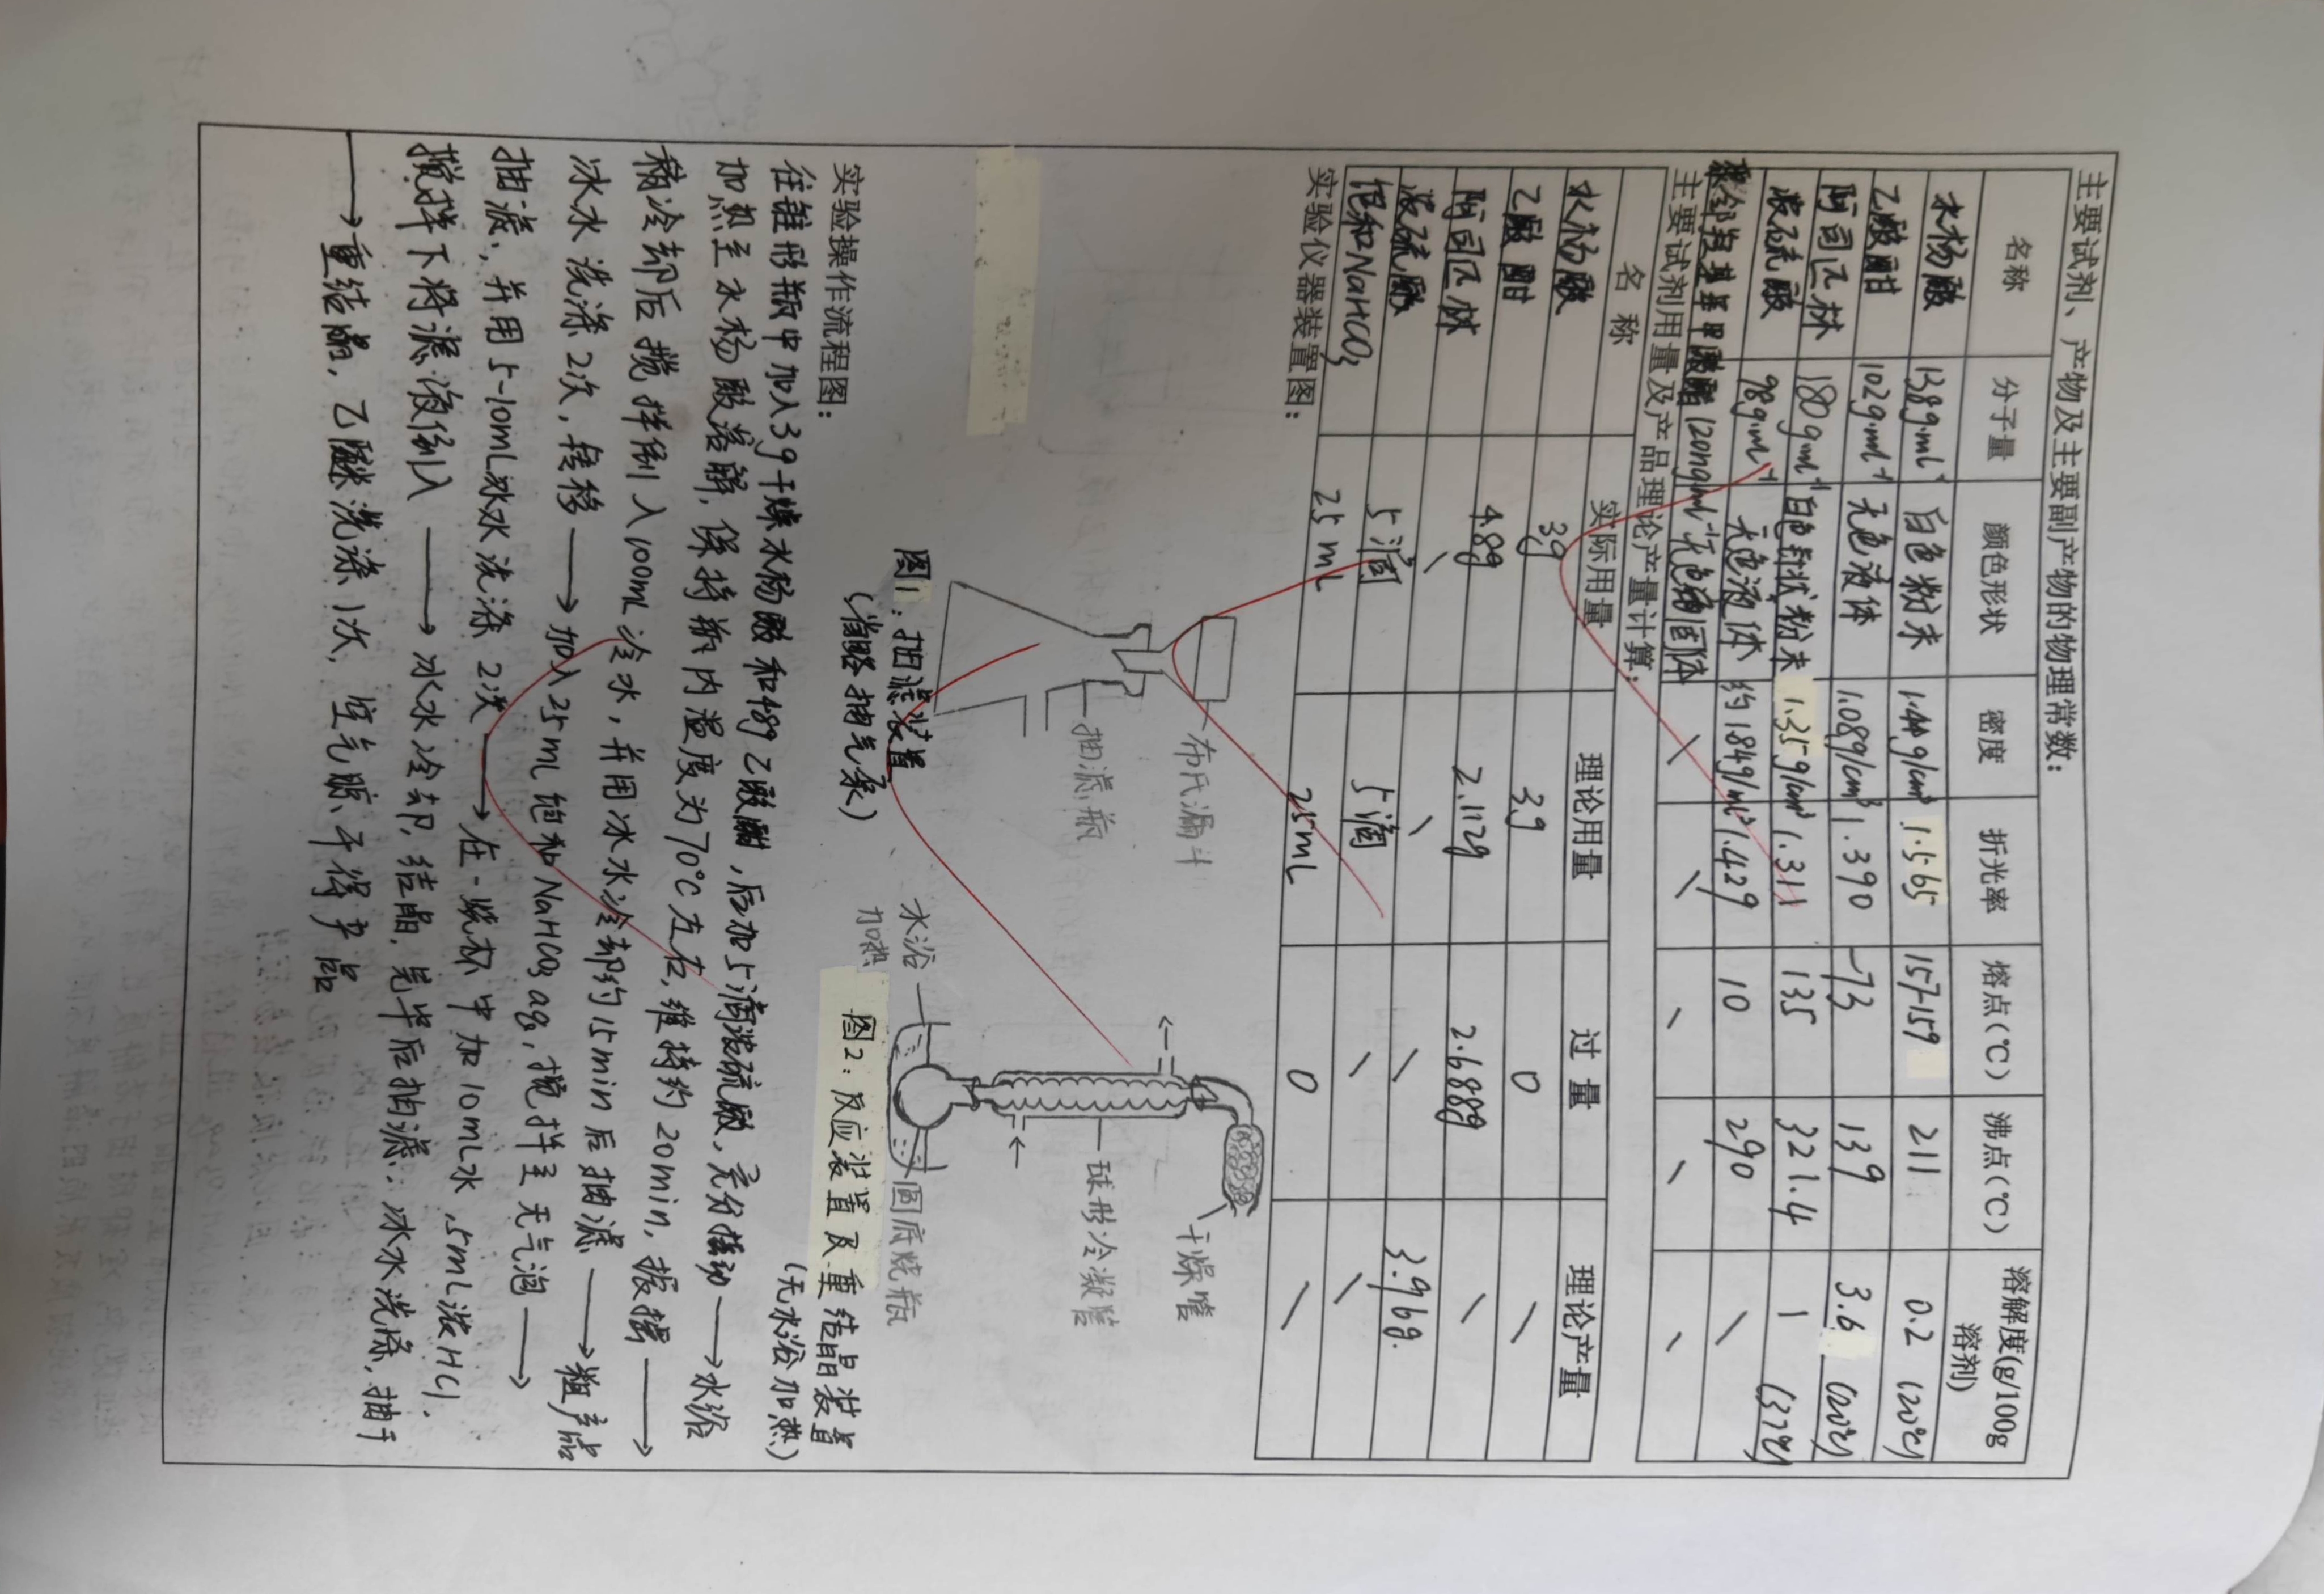 主要试剂、产物及主要副产物的物理常数：
名称 分子量 颜色形状 密度 折光率 熔点(℃) 沸点(℃) 溶解度(g/100g溶剂)
水杨酸 138g·mol⁻¹ 白色粉末 1.44g/cm³ 1.565 157-159 211 0.2 (20℃)
乙酸酐 102g·mol⁻¹ 无色液体 1.089g/cm³ 1.390 -73 139 3.6 (20℃)
阿司匹林 180g·mol⁻¹ 白色针状粉末 1.35g/cm³ 1.311 135 321.4 1 (37℃)
浓硫酸 98g·mol⁻¹ 无色液体 约1.84g/ml 1.429 10 290 \
聚邻羟基苯甲酸酯 120ng/mol 无色 固体 \ \ \ \ \
主要试剂用量及产品理论产量计算：
名 称 实际用量 理论用量 过 量 理论产量
水杨酸 3g 3g 0 \
乙酸酐 4.8g 2.112g 2.688g \
阿司匹林 \ \ \ 3.96g.
浓硫酸 5滴 5滴 \ \
饱和NaHCO₃ 25mL 25mL 0 \
实验仪器装置图：
布氏漏斗
抽滤瓶
图1：抽滤装置
(省略抽气泵)
干燥管
球形冷凝管
圆底烧瓶
水浴
加热
图2：反应装置及重结晶装置
(无水浴加热)
实验操作流程图：
往锥形瓶中加入3g干燥水杨酸和4.8g乙酸酐，后加5滴浓硫酸，充分摇动 ⟶ 水浴
加热至水杨酸溶解，保持瓶内温度为70℃左右，维持约20min，振摇 ⟶
稍冷却后搅拌倒入100mL冷水，并用冰水冷却约15min后抽滤 ⟶ 粗产品
冰水洗涤2次，转移 ⟶ 加入25mL饱和NaHCO₃ aq，搅拌至无气泡 ⟶
抽滤，并用5-10mL冰水洗涤2次 ⟶ 在一烧杯中加10mL水，5mL浓HCl.
搅拌下将滤液倒入 ⟶ 冰水冷却，结晶，完毕后抽滤：冰水洗涤，抽干
⟶ 重结晶，乙醚洗涤1次，空气晾干得产品